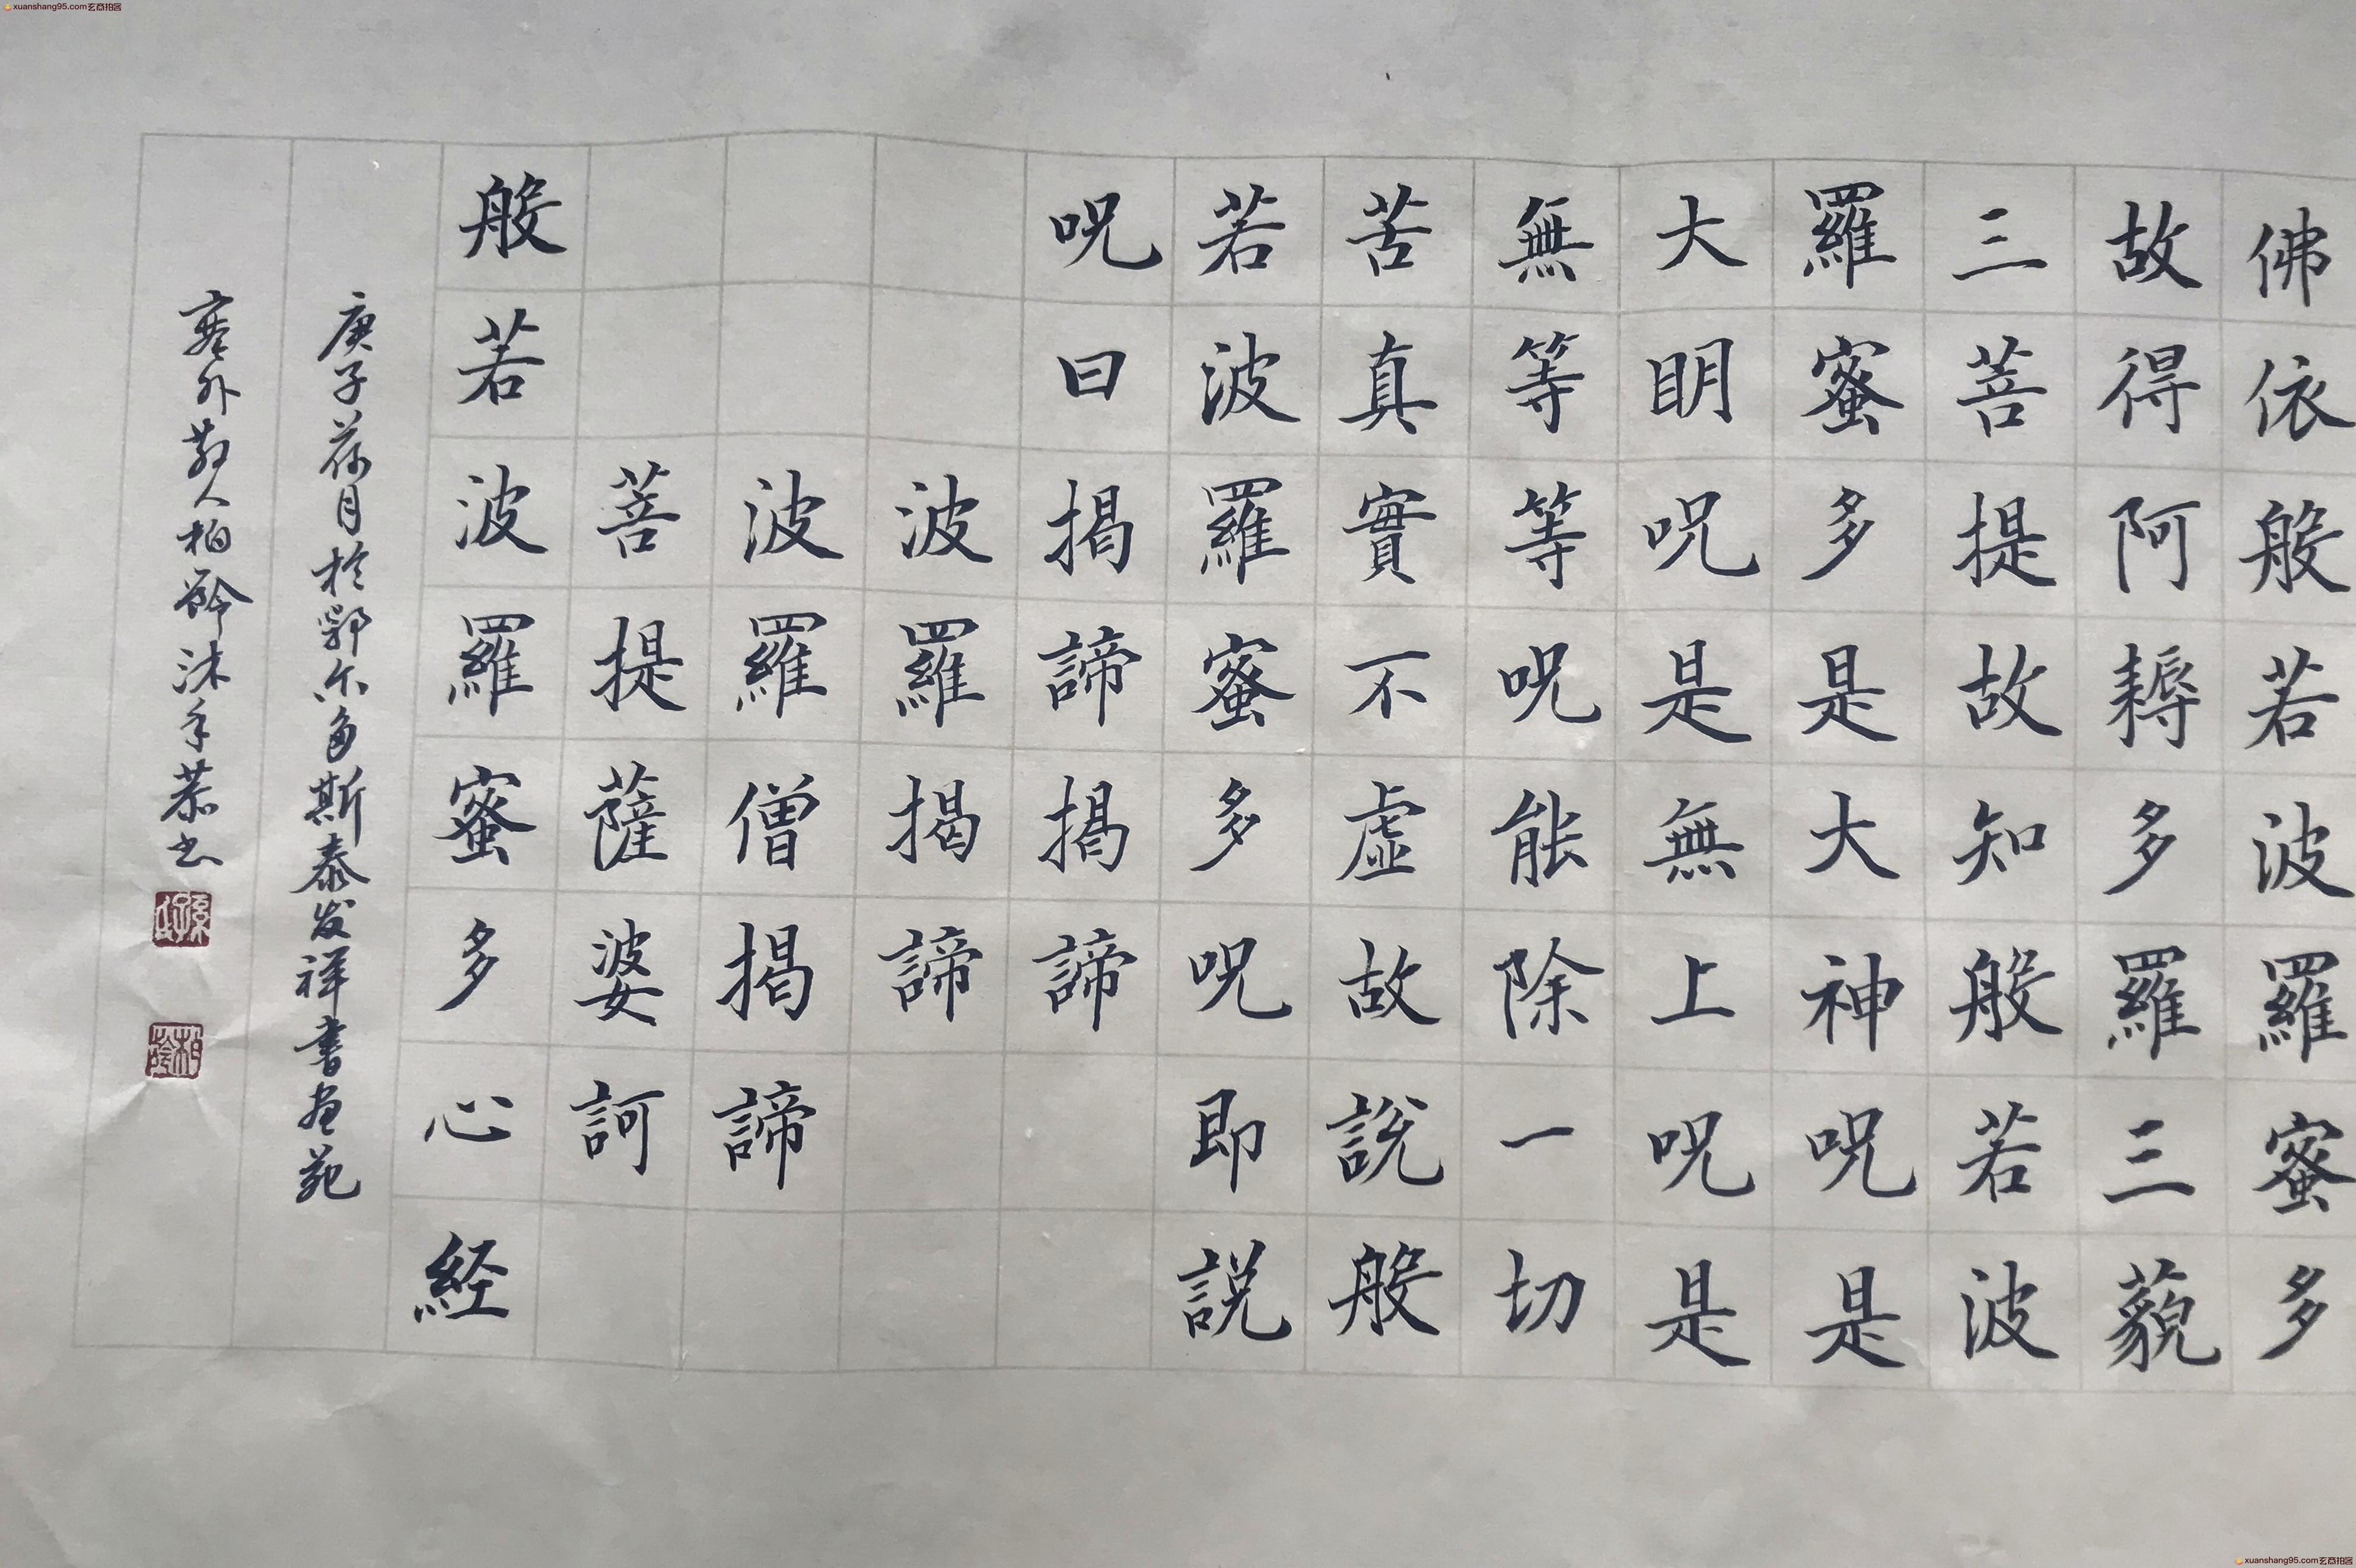 佛依般若波羅蜜多
故得阿耨多羅三藐
三菩提故知般若波
羅蜜多是大神呪是
大明呪是無上呪是
無等等呪能除一切
苦真實不虛故說般
若波羅蜜多呪即説
呪曰揭諦揭諦
波羅揭諦
波羅僧揭諦
菩提薩婆訶
般若波羅蜜多心経
庚子荷月於鄂尔多斯泰发祥書画苑
塞外散人柏齡沐手恭书
xuanshang95.com玄商拍客
xuanshang95.com玄商拍客